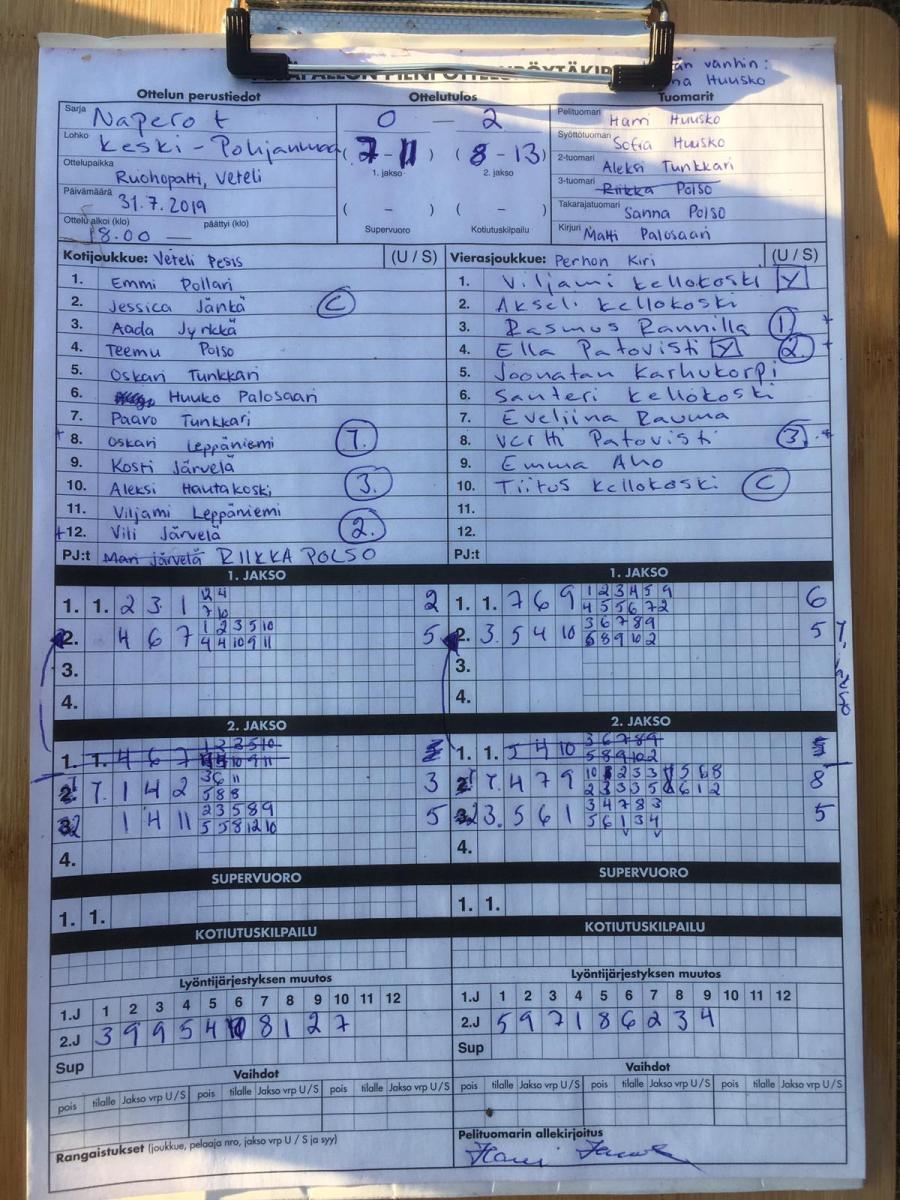 Ottelun perustiedot Ottelutulos Tuomarit
än vanhin:
na Huusko
Sarja Naperot
Lohko Keski-Pohjanmaa
Ottelupaikka Ruohopatti, Veteli
Päivämäärä 31.7.2019
Ottelu alkoi (klo) 18.00 — päättyi (klo)
0 — 2
(7-11) (8-13)
1. jakso 2. jakso
( - ) ( - )
Supervuoro Kotiutuskilpailu
Pelituomari Harri Huusko
Syöttötuomari Sofia Huusko
2-tuomari Aleksi Tunkkari
3-tuomari Riikka Polso
Takarajatuomari Sanna Polso
Kirjuri Matti Palosaari
Kotijoukkue: Veteli Pesis (U / S)
1. Emmi Pollari
2. Jessica Jänkä C
3. Aada Jyrkkä
4. Teemu Polso
5. Oskari Tunkkari
6. Huuko Palosaari
7. Paavo Tunkkari
+ 8. Oskari Leppäniemi 1.
9. Kosti Järvelä
10. Aleksi Hautakoski 3.
11. Viljami Leppäniemi
+12. Vili Järvelä 2.
PJ:t Mari Järvelä RIIKKA POLSO
Vierasjoukkue: Perhon Kiri (U / S)
1. Viljami Kellokoski Y
2. Akseli Kellokoski
3. Rasmus Rannilla 1 +
4. Ella Patovisti Y 2. +
5. Joonatan Karhukorpi
6. Santeri Kellokoski
7. Eveliina Rauma
8. Vertti Patovisti 3. +
9. Emma Aho
10. Tiitus Kellokoski C
11.
12.
PJ:t
1. JAKSO 1. JAKSO
1. 1. 2 3 1 12 4 2
7 10
2. 4 6 7 1 2 3 5 10 5
4 4 10 9 11
3.
4.
1. 1. 7 6 9 1 2 3 4 5 9 6
4 5 5 6 7 2
2. 3. 5 4 10 3 6 7 8 9 5
5 8 9 10 2
3.
4.
2. JAKSO 2. JAKSO
1. 1. 4 6 7 1 2 3 5 10 5
4 4 10 9 11
1. 1 4 2 3 6 11 3
5 8 8
1 4 11 2 3 5 8 9 5
5 5 8 12 10
4.
1. 1. 5 4 10 3 6 7 8 9 5
5 8 9 10 2
4 7 9 8
3. 5 6 1 3 4 7 8 3 5
5 6 1 3 4
4.
SUPERVUORO SUPERVUORO
1. 1. 1. 1.
KOTIUTUSKILPAILU KOTIUTUSKILPAILU
Lyöntijärjestyksen muutos Lyöntijärjestyksen muutos
1.J 1 2 3 4 5 6 7 8 9 10 11 12
2.J 3 9 9 5 4 10 8 1 2 7
Sup
1.J 1 2 3 4 5 6 7 8 9 10 11 12
2.J 5 9 7 1 8 6 2 3 4
Sup
Vaihdot Vaihdot
pois tilalle Jakso vrp U / S pois tilalle Jakso vrp U / S pois tilalle Jakso vrp U / S
pois tilalle Jakso vrp U / S pois tilalle Jakso vrp U / S pois tilalle Jakso vrp U / S
Rangaistukset (joukkue, pelaaja nro, jakso vrp U / S ja syy)
Pelituomarin allekirjoitus